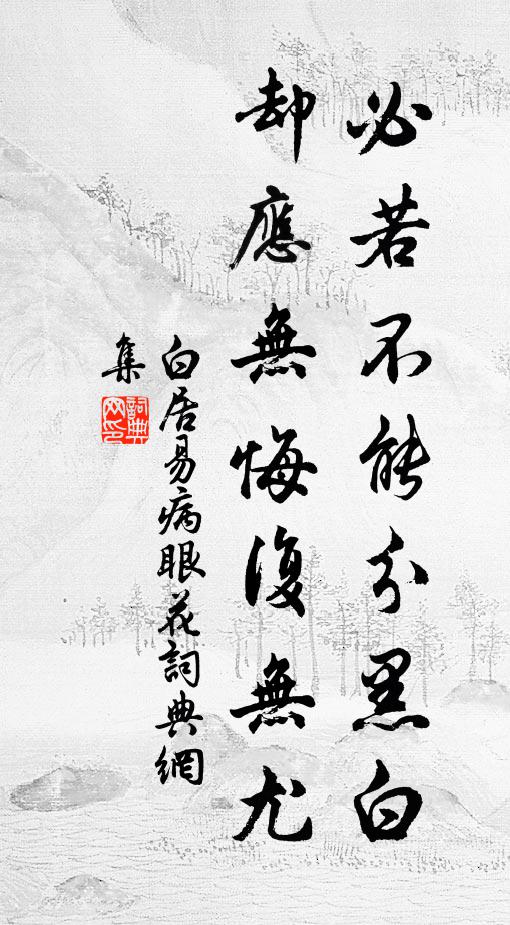 必若不能分黑白
却應無悔復無尤
白居易病眼花詞典網
集
詞典
网印